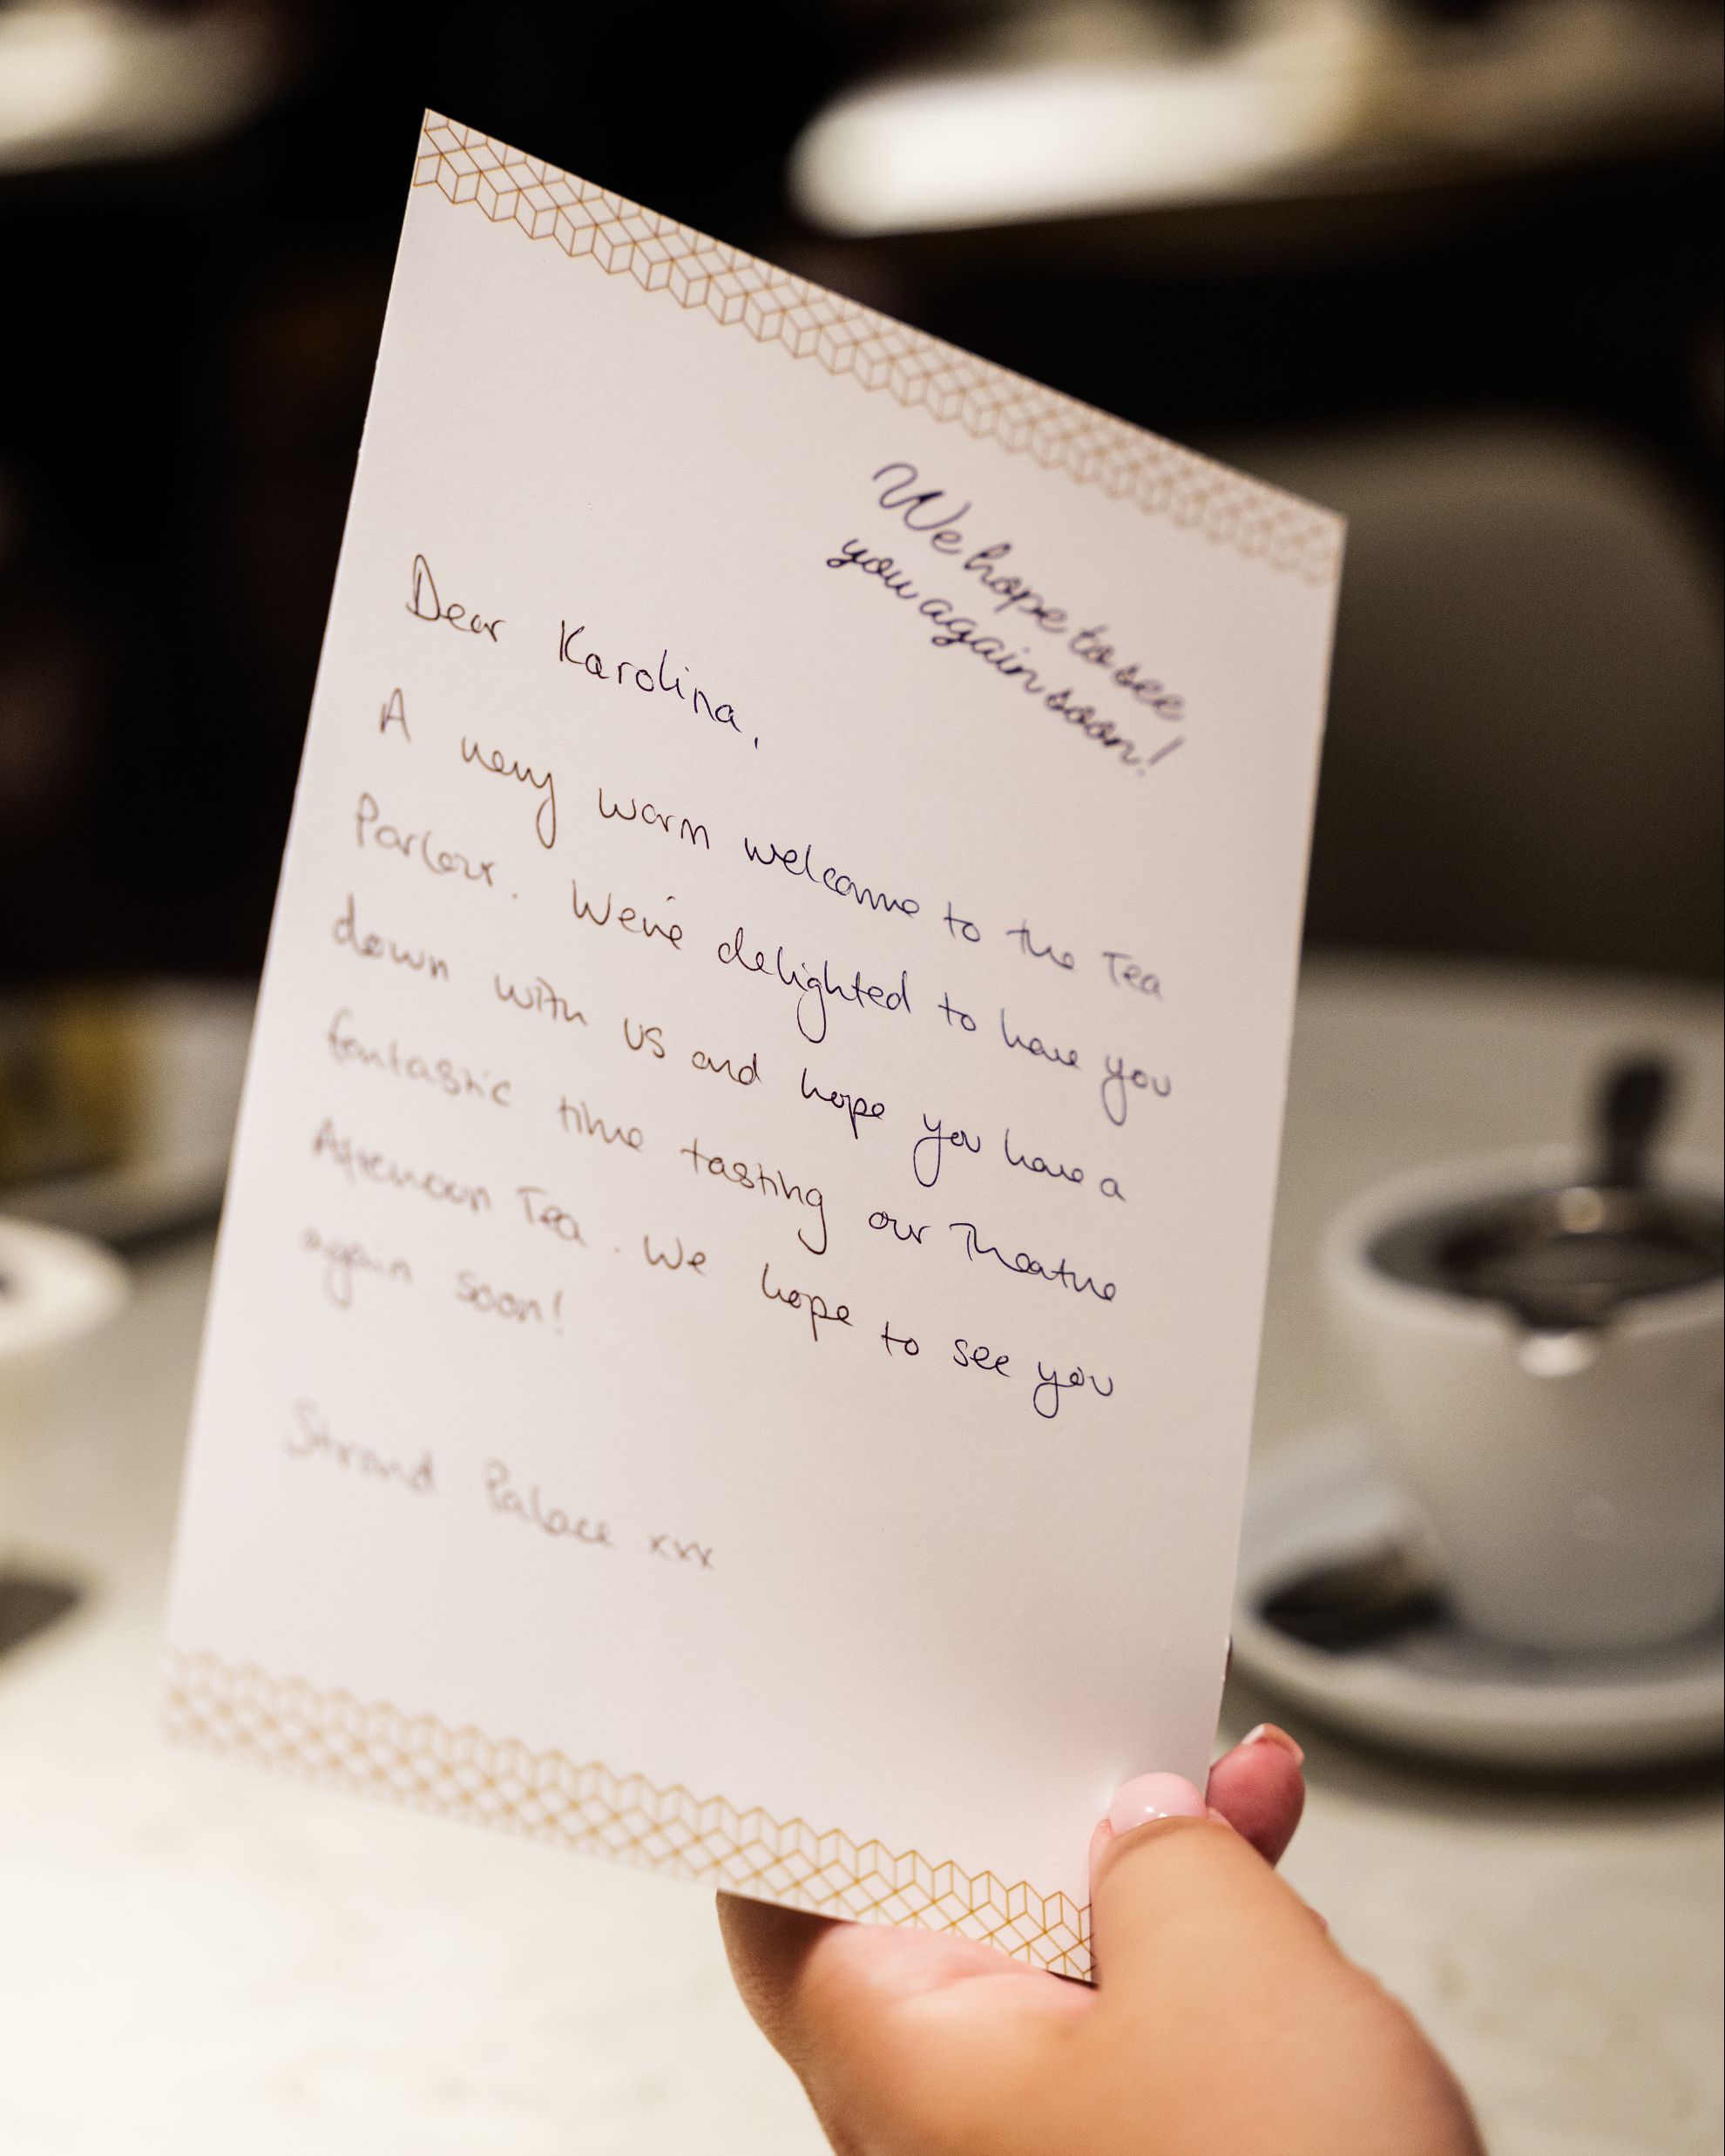 We hope to see
you again soon!
Dear Karolina,
A very warm welcome to the Tea
Parlour. We're delighted to have you
down with us and hope you have a
fantastic time tasting our Theatre
Afternoon Tea. We hope to see you
again soon!
Strand Palace xxx